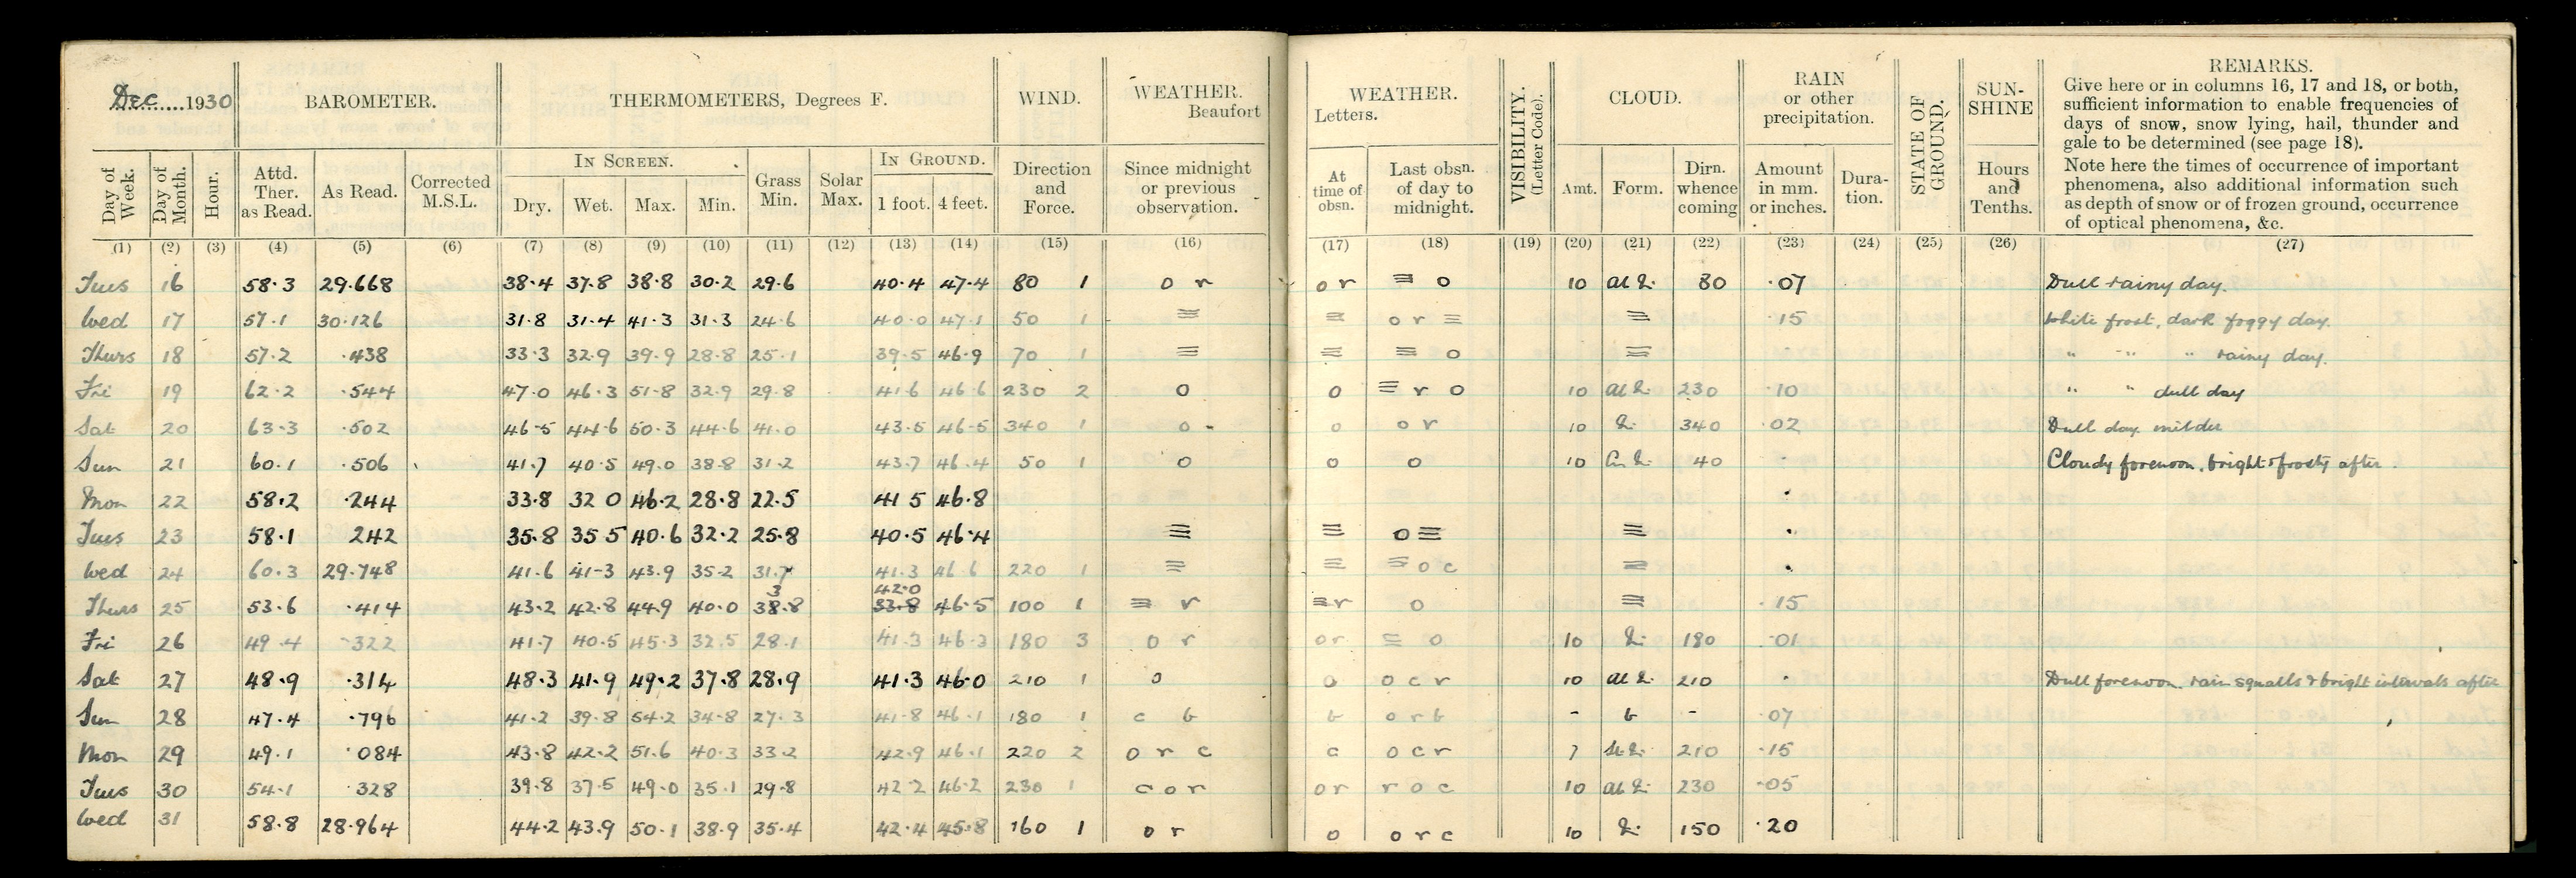 Dec 1930
BAROMETER.
THERMOMETERS, Degrees F.
WIND.
WEATHER.
Beaufort
WEATHER.
Letters.
VISIBILITY.
(Letter Code).
CLOUD.
RAIN
or other
precipitation.
STATE OF
GROUND.
SUN-
SHINE
REMARKS.
Give here or in columns 16, 17 and 18, or both,
sufficient information to enable frequencies of
days of snow, snow lying, hail, thunder and
gale to be determined (see page 18).
Note here the times of occurrence of important
phenomena, also additional information such
as depth of snow or of frozen ground, occurrence
of optical phenomena, &c.
Day of
Week.
Day of
Month.
Hour.
Attd.
Ther.
as Read.
As Read.
Corrected
M.S.L.
IN SCREEN.
Dry. Wet. Max. Min.
Grass
Min.
Solar
Max.
IN GROUND.
1 foot. 4 feet.
Direction
and
Force.
Since midnight
or previous
observation.
At
time of
obsn.
Last obsn.
of day to
midnight.
Amt. Form.
Dirn.
whence
coming
Amount
in mm.
or inches.
Dura-
tion.
Hours
and
Tenths.
(1) (2) (3) (4) (5) (6) (7) (8) (9) (10) (11) (12) (13) (14) (15) (16) (17) (18) (19) (20) (21) (22) (23) (24) (25) (26) (27)
Tues 16 58.3 29.668 38.4 37.8 38.8 30.2 29.6 40.4 47.4 80 1 o r o r ≡ o 10 80 ·07 Dull rainy day.
Wed 17 57.1 30.126 31.8 31.4 41.3 31.3 24.6 40.0 47.1 50 1 ≡ ≡ o r ≡ ≡ ·15 White frost, dark foggy day.
Thurs 18 57.2 ·438 33.3 32.9 39.9 28.8 25.1 39.5 46.9 70 1 ≡ ≡ ≡ o ≡ " " " rainy day.
Fri 19 62.2 ·544 47.0 46.3 51.8 32.9 29.8 41.6 46.6 230 2 o o ≡ r o 10 230 ·10 " " dull day
Sat 20 63.3 ·502 46.5 44.6 50.3 44.6 41.0 43.5 46.5 340 1 o o o r 10 340 ·02 Dull day milder
Sun 21 60.1 ·506 41.7 40.5 49.0 38.8 31.2 43.7 46.4 50 1 o o o 10 40 Cloudy forenoon, bright & frosty after.
Mon 22 58.2 ·244 33.8 32 0 46.2 28.8 22.5 41 5 46.8
Tues 23 58.1 242 35.8 35 5 40.6 32.2 25.8 40.5 46.4 ≡ ≡ o ≡ ≡
Wed 24 60.3 29.748 41.6 41.3 43.9 35.2 31.7 41.3 46.6 220 1 ≡ ≡ ≡ o c ≡
3 42.0
Thurs 25 53.6 ·414 43.2 42.8 44.9 40.0 38.8 33.8 46.5 100 1 ≡ r ≡ r o ≡ ·15
Fri 26 49.4 ·322 41.7 40.5 45.3 32.5 28.1 41.3 46.3 180 3 o r o r ≡ o 10 180 ·01
Sat 27 48.9 ·314 48.3 41.9 49.2 37.8 28.9 41.3 46.0 210 1 o o o c r 10 210 Dull forenoon. rain squalls & bright intervals after
Sun 28 47.4 ·796 41.2 39.8 54.2 34.8 27.3 41.8 46.1 180 1 c b b o r b - b - ·07
Mon 29 49.1 ·084 43.8 42.2 51.6 40.3 33.2 42.9 46.1 220 2 o r c c o c r 7 210 ·15
Tues 30 54.1 ·328 39.8 37.5 49.0 35.1 29.8 42 2 46.2 230 1 c o r o r r o c 10 230 ·05
Wed 31 58.8 28.964 44.2 43.9 50.1 38.9 35.4 42.4 45.8 160 1 o r o o r c 10 150 ·20